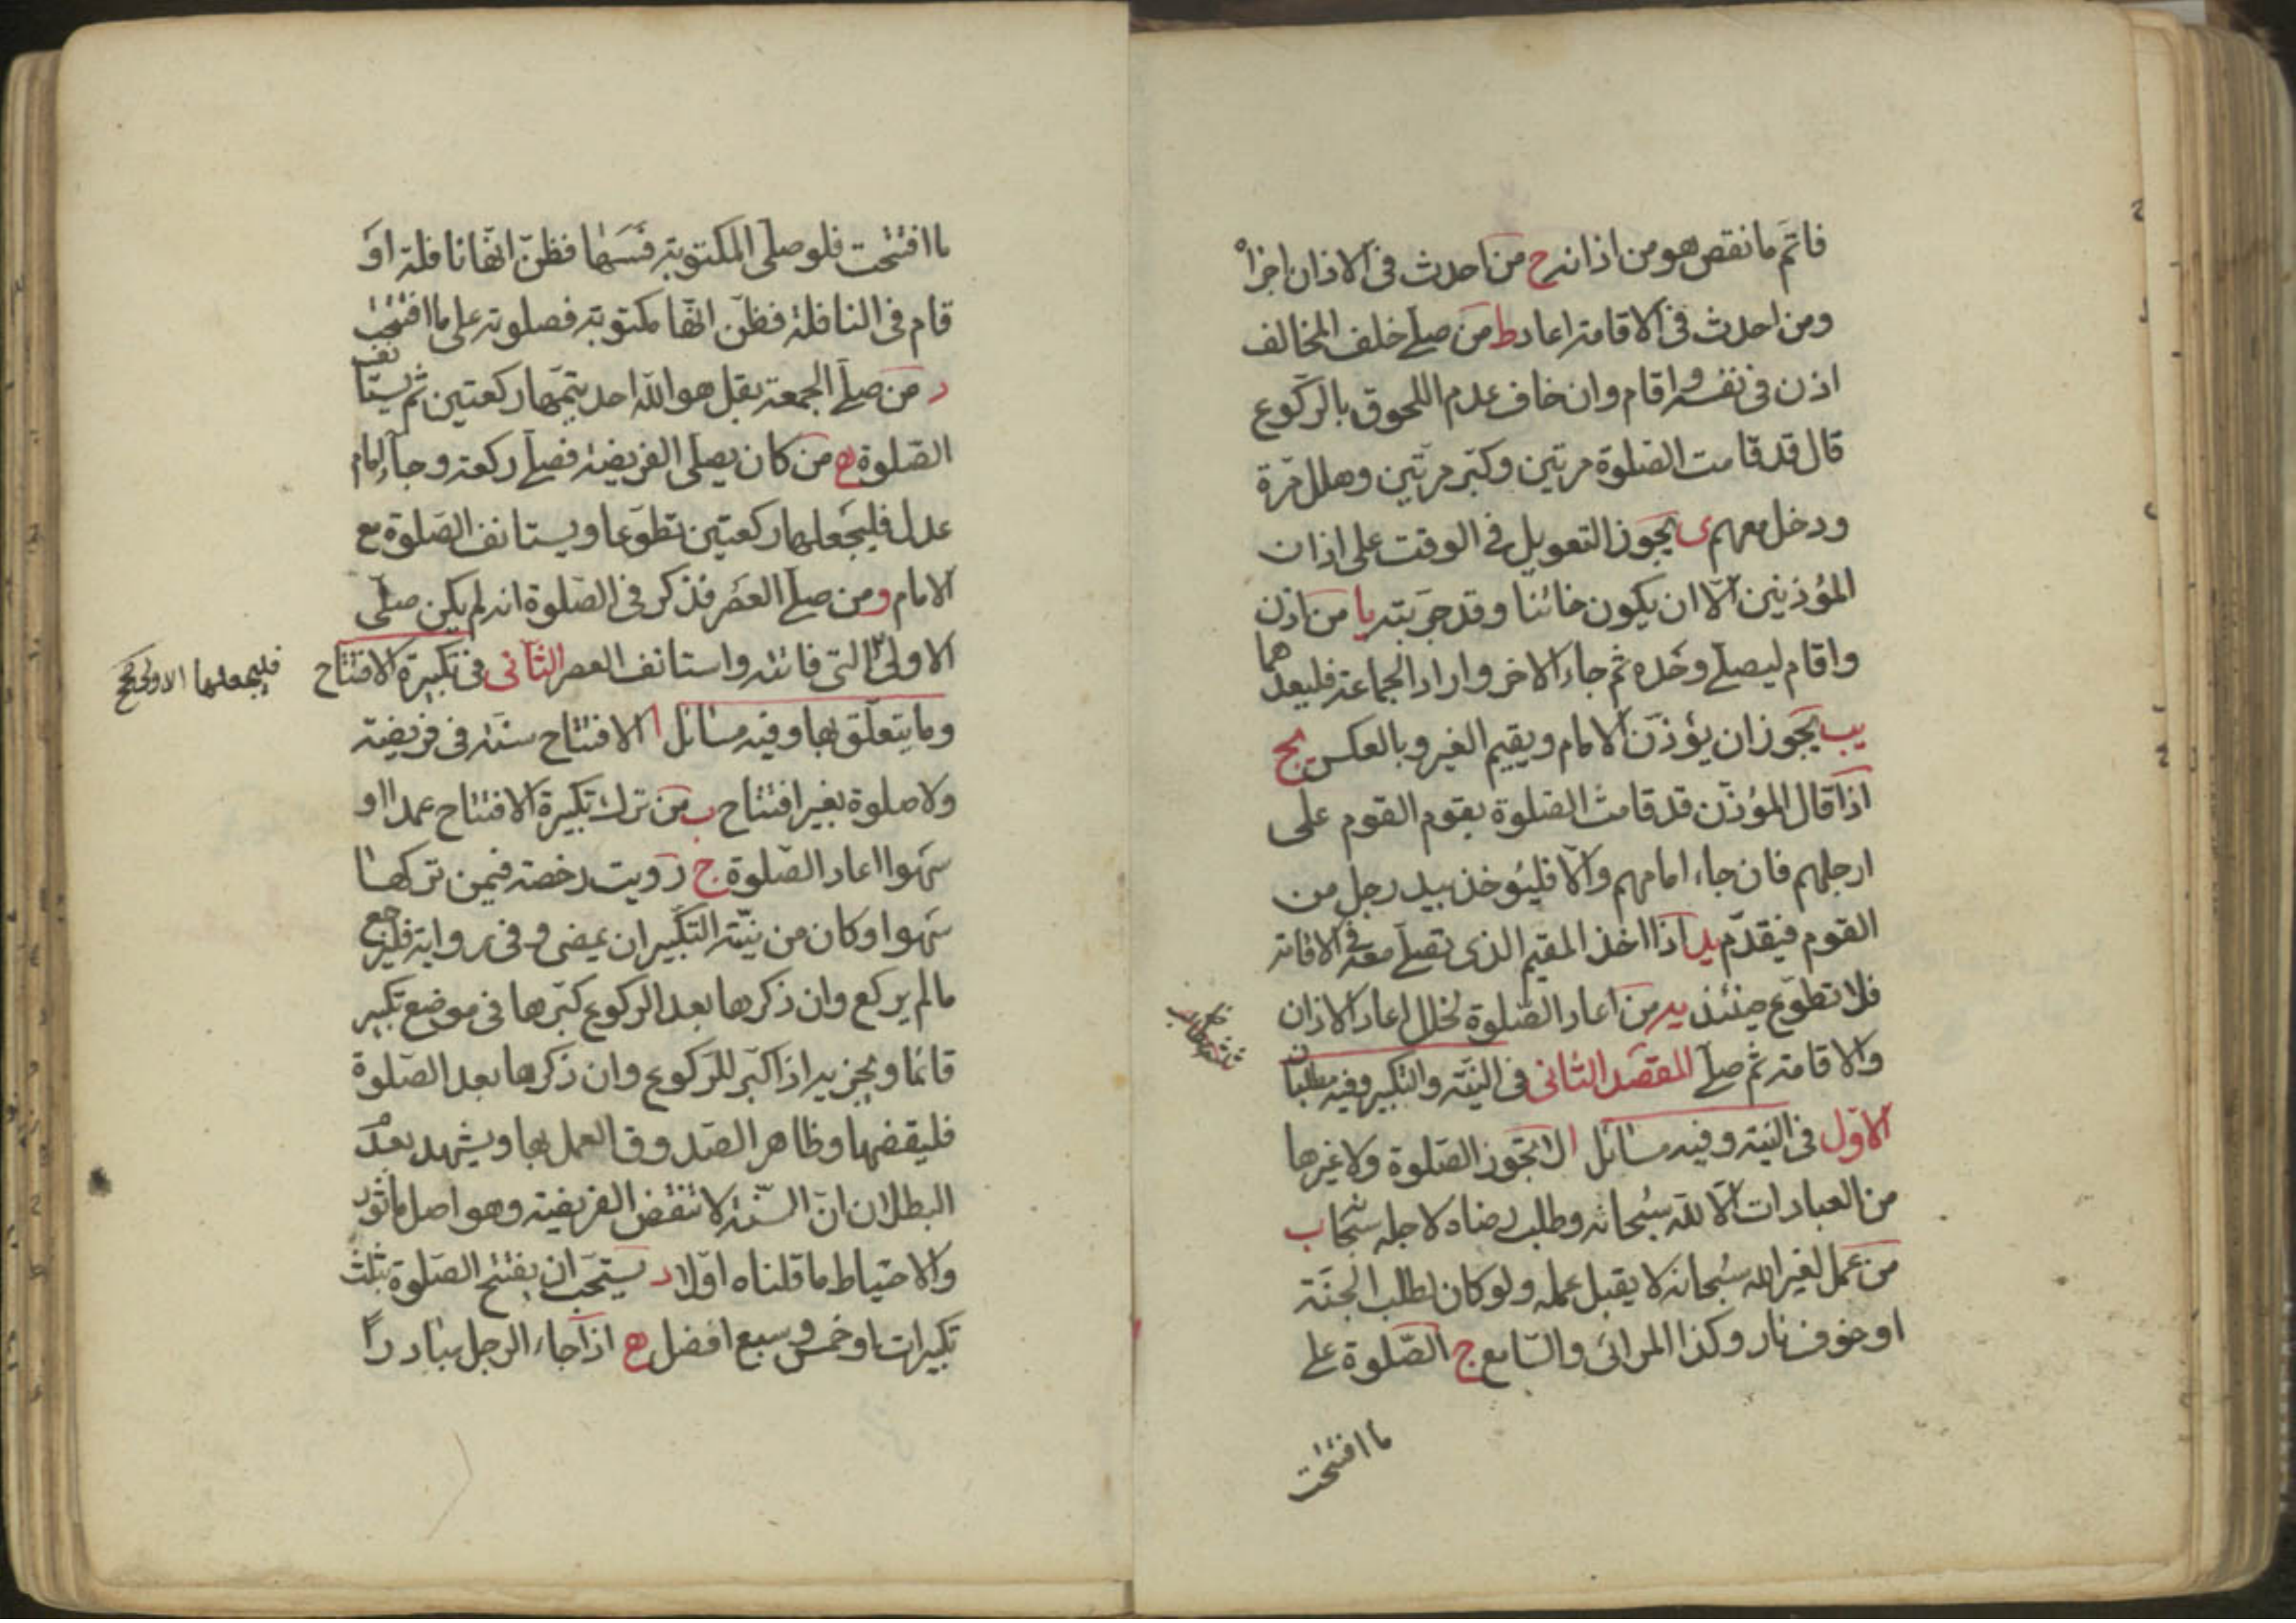 فاتم ما نقص هو من اذانه ح من احدث فى الاذان اجزاه
ومن احدث فى الاقامة اعاد ط من صلى خلف المخالف
اذن فى نفسه واقام وان خاف عدم اللحوق بالركوع
قال قد قامت الصلوة مرتين وكبر مرتين وهلل مرة
ودخل معهم ى يجوز التعويل فى الوقت على اذان
المؤذنين الا ان يكون خائنا وقد جربته يا من اذن
واقام ليصلى وحده ثم جاء الاخر واراد الجماعة فليعدهما
يب يجوز ان يؤذن الامام ويقيم الغير وبالعكس يج
اذا قال المؤذن قد قامت الصلوة يقوم القوم على
ارجلهم فان جاء امامهم والا فليؤخذ بيد رجل من
القوم فيقدم يد اذا اخذ المقيم الذى تصلى معه فى الاقامة
فلا تطوع حينئذ يه من اعاد الصلوة لخلل اعاد الاذان
والاقامة ثم صلى المقصد الثانى فى النية والتكبير وفيه مطلبان
الاول فى النية وفيه مسائل ا لا تجوز الصلوة ولا غيرها
من العبادات الا لله سبحانه وطلب رضاه لاجله ب
من عمل لغير الله سبحانه لا يقبل عمله ولو كان لطلب الجنة
او خوف نار وكذا المرائى والسامع ج الصلوة على
ما افتتحت
ما افتتحت فلو صلى المكتوبة فسها فظن انها نافلة او
قام فى النافلة فظن انها مكتوبة فصلوته على ما افتتحت
د من صلى الجمعة بقل هو الله احد يتمها ركعتين ثم يستانف
الصلوة ه من كان يصلى الفريضة فصلى ركعة وجاء امام
عدل فليجعلها ركعتين تطوعا ويستانف الصلوة مع
الامام و من صلى العصر فذكر فى الصلوة انه لم يكن صلى
الاولى التى فاتته واستانف العصر الثانى فى تكبيرة الافتتاح
فليجعلها الاولى
وما يتعلق بها وفيه مسائل ا الافتتاح سنة فى فريضة
ولا صلوة بغير افتتاح ب من ترك تكبيرة الافتتاح عمدا او
سهوا اعاد الصلوة ج رويت رخصة فيمن تركها
سهوا وكان من نيته التكبير ان يمضى وفى رواية فليرجع
ما لم يركع وان ذكرها بعد الركوع كبرها فى موضع تكبير
قائما ويجزيه اذا كبر للركوع وان ذكرها بعد الصلوة
فليقضها وظاهر الصدوق العمل بها ويشهد بعدم
البطلان ان السنة لا تنقض الفريضة وهو اصل ماثور
والاحتياط ما قلناه اولا د يستحب ان يفتتح الصلوة بثلث
تكبيرات او خمس وسبع افضل ه اذا جاء الرجل مبادرا